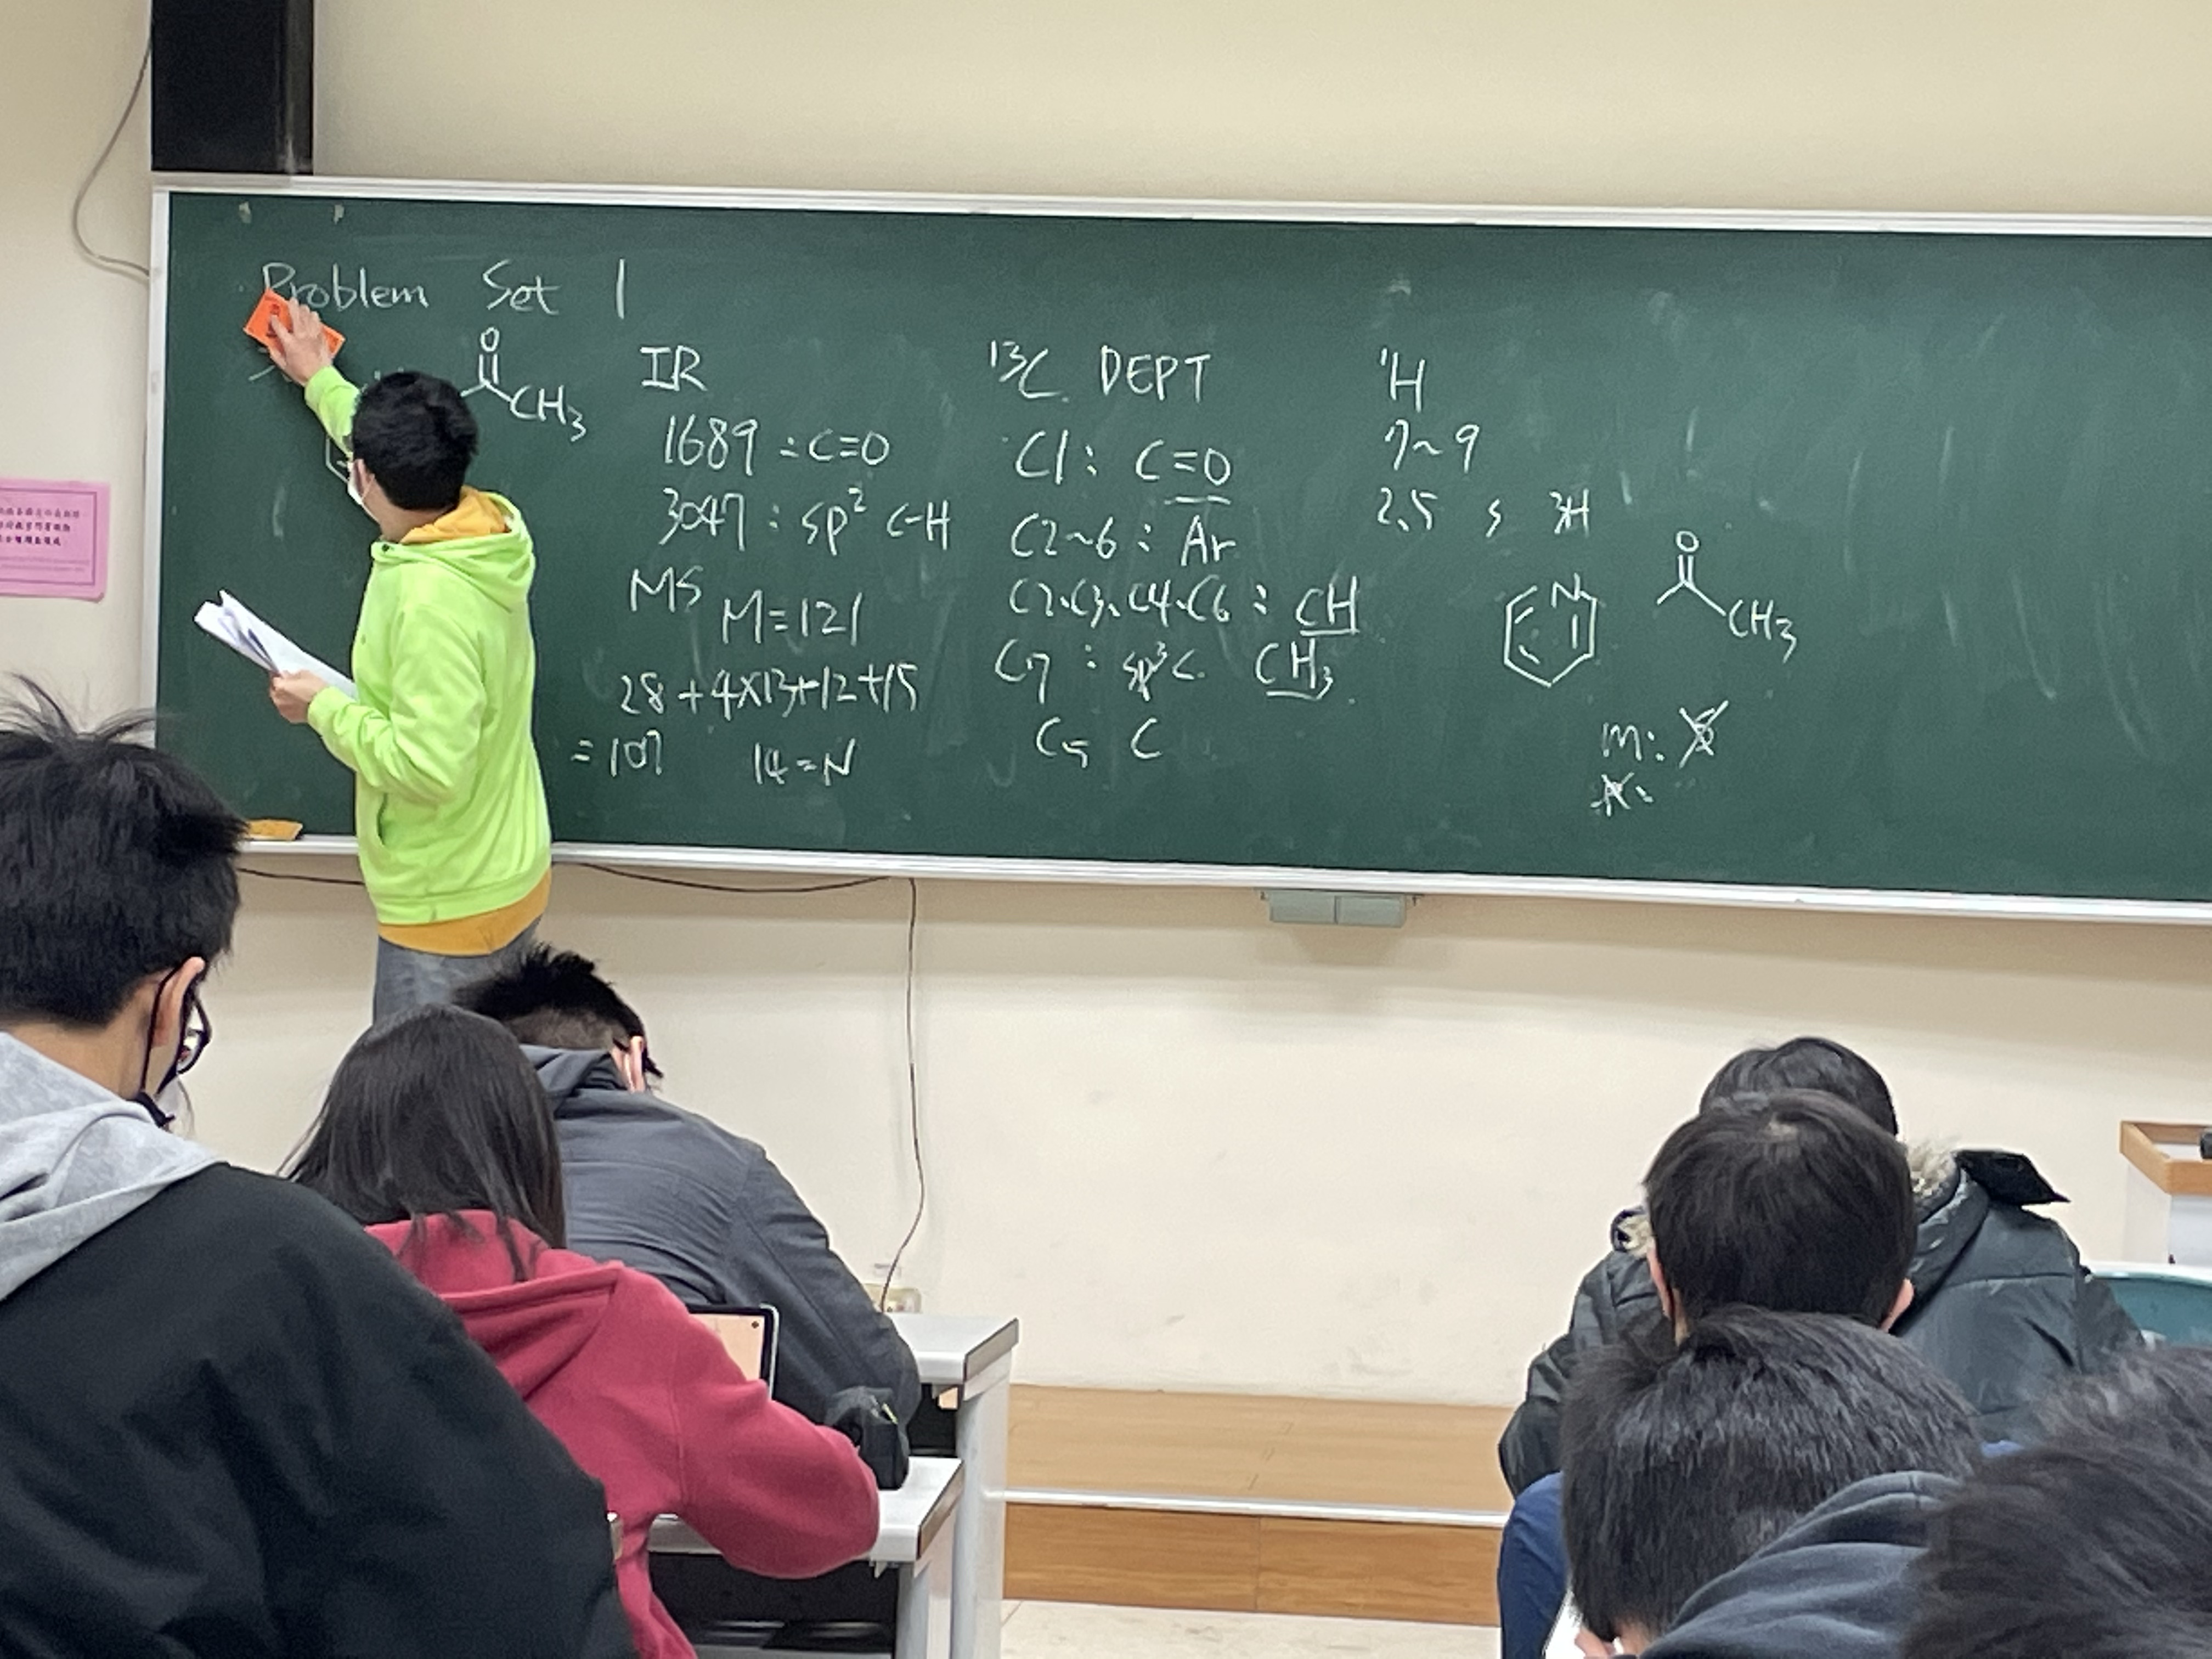 Problem Set 1
O
CH₃
IR
1689 : C=O
3047 : sp² C-H
MS M=121
28+4×13+12+15
=107 14=N
¹³C DEPT
C1: C=O
C2~6: Ar
C2、C3、C4、C6: CH
C7: sp³C. CH₃
C5 C
¹H
7~9
2.5 s 3H
N
O
CH₃
m: